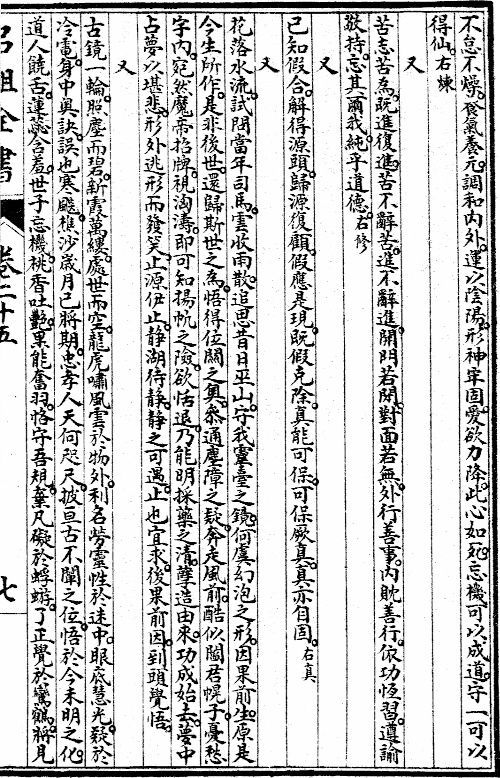 不怠不燥發氣養元調和内外運以陰陽形神牢固愛欲力降此心如死忘機可以成道守一可以
得仙右煉
又
苦志苦為既進復進苦不辭苦進不辭進開門若閉對面若無外行善事内耽善行依功恆習遵諭
敬持忘其爾我純乎道德右修
又
已知假合解得源頭歸源復顧假應是現既假克除真能可保可保厥真真亦自固右真
又
花落水流試閲當年司馬雲收雨散追思昔日巫山守我靈臺之鏡何虞幻泡之形因果前生原是
今生所作是非後世還歸斯世之為悟得位關之奧參通塵障之疑奔走風前酷似閻君幌子憂愁
字内宛然魔帝招牌視洶濤即可知揚帆之險欲恬退乃能明採藥之清孽造由來功成始去夢中
占夢以堪悲形外逃形而發笑止源伊止静湖待静静之可遇止也宜求後果前因到頭覺悟
又
古鏡一輪照塵而碧新霞萬縷處世而空龍虎嘯風雲於物外利名勞靈性於迷中眼底慧光殺於
冷電身中奥訣誤也寒颼樵沙歲月已將期忠孝人天何咫尺披亘古不闡之位悟於今未明之化
道人饒舌蓮蕊含羞世子忘機桃香吐艷果能奮羽恪守吾規棄凡礙於蜉蝣了正覺於鸞鶴將見
呂祖全書
卷二十五
七